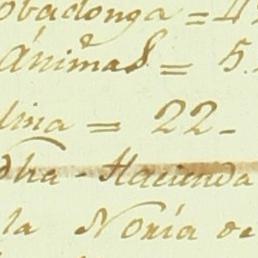 obadonga = 4
Ánimas = 5.
lina = 22-
dha - Hacienda
la Noria de